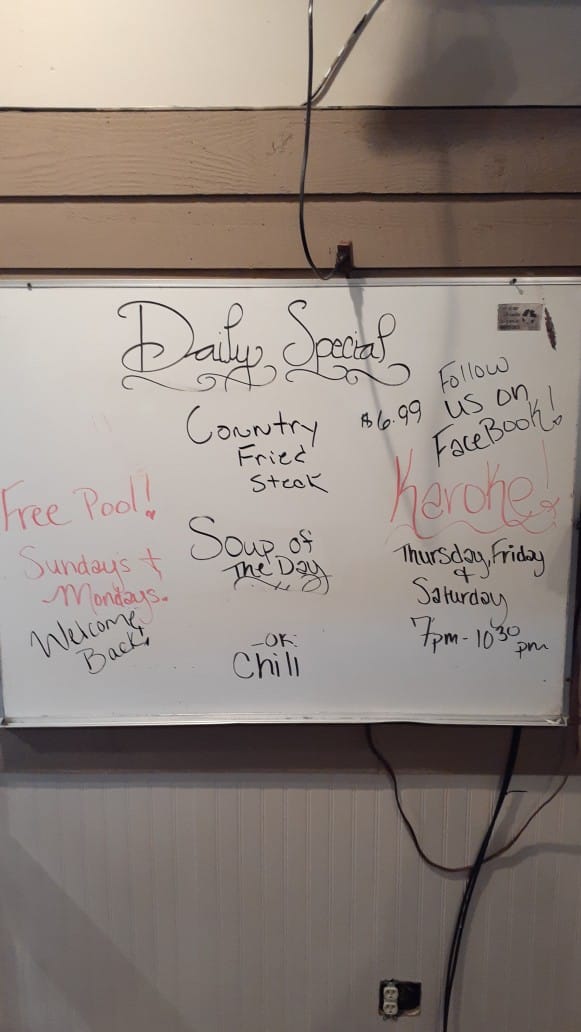 Daily Special
Country
Fried
Steak
$6.99
Follow
us on
FaceBook!
Free Pool!
Sunday's +
Mondays.
Welcome
Back!
Soup of
The Day
-OR-
Chili
Karoke!
Thursday, Friday
+
Saturday
7pm - 10:30 pm